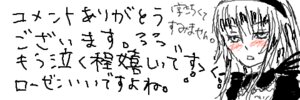 コメントありがとう
ございます。ろろ
もう泣く程嬉しいです
ローゼンいいですよね。
すみません。